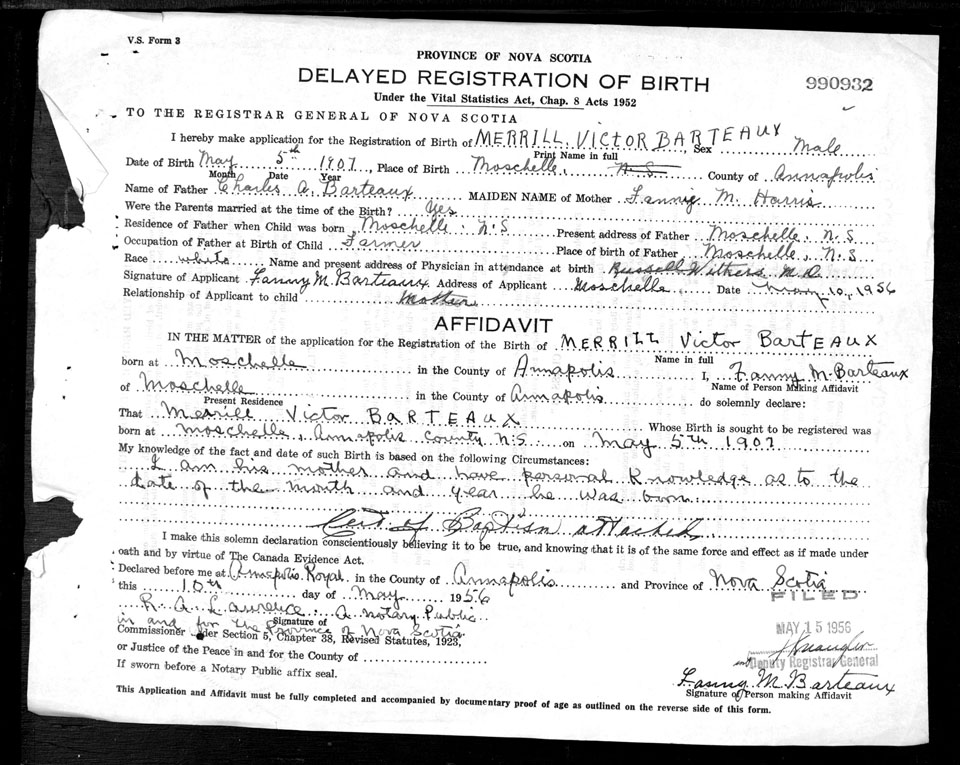 V.S. Form 3
PROVINCE OF NOVA SCOTIA
DELAYED REGISTRATION OF BIRTH
990932
Under the Vital Statistics Act, Chap. 8 Acts 1952
TO THE REGISTRAR GENERAL OF NOVA SCOTIA
I hereby make application for the Registration of Birth of MERRILL VICTOR BARTEAUX Sex Male
Print Name in full
Date of Birth May 5th 1907, Place of Birth Moschelle, N.S County of Annapolis
Month Date Year
Name of Father Charles A. Barteaux MAIDEN NAME of Mother Fanny M. Harris
Were the Parents married at the time of the Birth? Yes
Residence of Father when Child was born Moschelle, N.S Present address of Father Moschelle, N.S
Occupation of Father at Birth of Child Farmer Place of birth of Father Moschelle, N.S
Race white Name and present address of Physician in attendance at birth Russell Withers M.D.
Signature of Applicant Fanny M. Barteaux Address of Applicant Moschelle Date May 10, 1956
Relationship of Applicant to child Mother
AFFIDAVIT
IN THE MATTER of the application for the Registration of the Birth of MERRILL Victor BarTEAUX
Name in full
born at Moschelle in the County of Annapolis I, Fanny M. Barteaux
Name of Person Making Affidavit
of Moschelle in the County of Annapolis do solemnly declare:
Present Residence
That Merrill Victor BARTEAUX Whose Birth is sought to be registered was
born at Moschelle, Annapolis County N.S. on May 5th 1907
My knowledge of the fact and date of such Birth is based on the following Circumstances:
I am his mother and have personal Knowledge as to the
date of the month and year he was born
Cert of Baptism attached
I make this solemn declaration conscientiously believing it to be true, and knowing that it is of the same force and effect as if made under
oath and by virtue of The Canada Evidence Act.
Declared before me at Annapolis Royal in the County of Annapolis and Province of Nova Scotia
this 10th day of May 1956
FILED
R. A. Laurence A Notary Public
Signature of
in and for the Province of Nova Scotia
MAY 15 1956
Commissioner under Section 5, Chapter 38, Revised Statutes, 1923,
or Justice of the Peace in and for the County of
Deputy Registrar General
If sworn before a Notary Public affix seal.
Fanny M. Barteaux
Signature of Person making Affidavit
This Application and Affidavit must be fully completed and accompanied by documentary proof of age as outlined on the reverse side of this form.